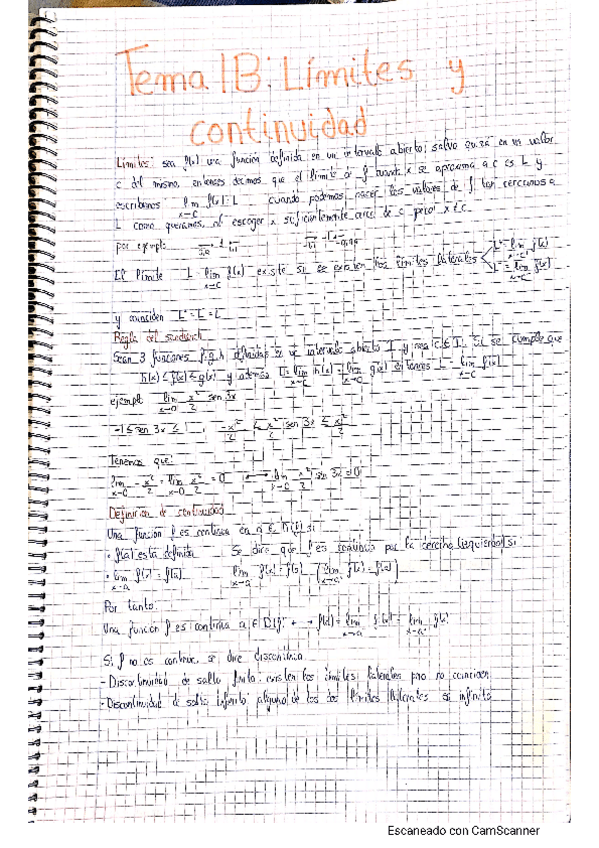 Tema 1B: Límites y
continuidad
Límites: sea f(x) una función definida en un intervalo abierto, salvo quizá en un valor
c del mismo, entonces decimos que el límite de f cuando x se aproxima a c es L y
escribimos lim f(x) = L cuando podemos hacer los valores de f tan cercanos a
x→c
L como queramos, al escoger x suficientemente cerca de c pero x ≠ c
por ejemplo
El límite L = lim f(x) existe si existen los límites laterales
x→c
y coinciden L⁺ = L⁻ = L
Regla del sandwich
Sean 3 funciones f, g, h definidas en un intervalo abierto I y sea c ∈ I. Si se cumple que
h(x) ≤ f(x) ≤ g(x) y además L = lim h(x) = lim g(x) entonces L = lim f(x)
ejemplo lim x²/2 sen 3x
x→0
-1 ≤ sen 3x ≤ 1 -x²/2 ≤ x²/2 sen 3x ≤ x²/2
Tenemos que:
lim -x²/2 = lim x²/2 = 0 lim x²/2 sen 3x = 0
Definición de continuidad
Una función f es continua en a ∈ D(f) si
• f(a) está definida Se dice que f es continua por la derecha (izquierda) si
• lim f(x) = f(a) lim f(x) = f(a) (lim f(x) = f(a))
x→a
Por tanto:
Una función f es continua a ∈ D(f) f(a) = lim f(x) = lim f(x)
Si f no es continua, se dice discontinua
- Discontinuidad de salto finito: existen los límites laterales pero no coinciden
- Discontinuidad de salto infinito: alguno de los dos límites laterales es infinito
Escaneado con CamScanner